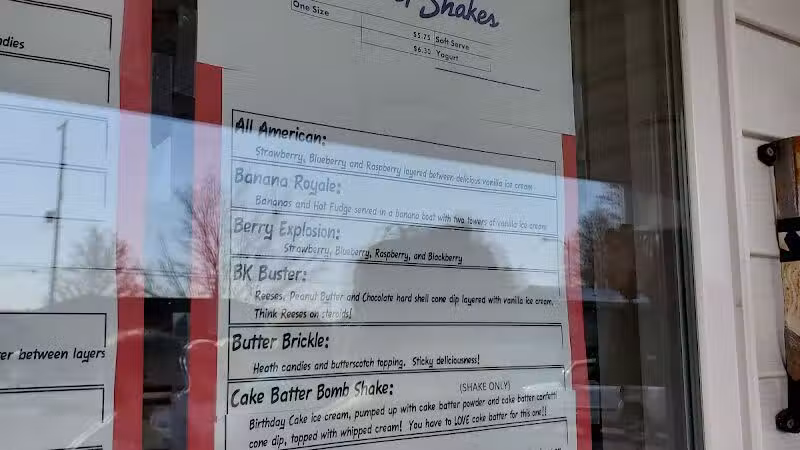 Shakes
One Size
$5.75 Soft Serve
$6.30 Yogurt
All American:
Strawberry, Blueberry and Raspberry layered between delicious vanilla ice cream
Banana Royale:
Bananas and Hot Fudge served in a banana boat with two towers of vanilla ice cream
Berry Explosion:
Strawberry, Blueberry, Raspberry, and Blackberry
BK Buster:
Reeses, Peanut Butter and Chocolate hard shell cone dip layered with vanilla ice cream.
Think Reeses on steroids!
Butter Brickle:
Heath candies and butterscotch topping. Sticky deliciousness!
Cake Batter Bomb Shake: (SHAKE ONLY)
Birthday Cake ice cream, pumped up with cake batter powder and cake batter confetti
cone dip, topped with whipped cream! You have to LOVE cake batter for this one!!
between layers